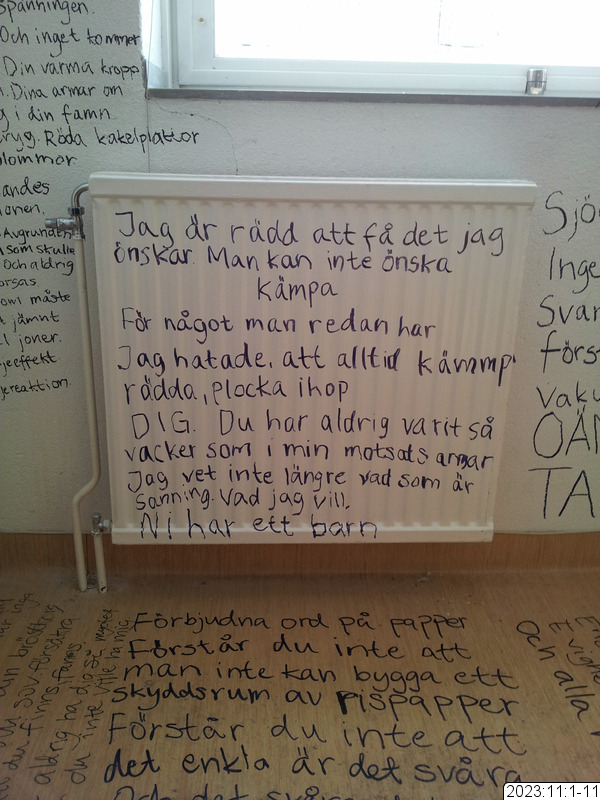 spänningen.
Och inget kommer
Din varma kropp
Dina armar om
i din famn
Röda kakelplattor
blommor
Avgrunden
som skulle
Och aldrig
måste
jämnt
joner.
Jag är rädd att få det jag
önskar. Man kan inte önska
kämpa
För något man redan har
Jag hatade, att alltid kämmp
rädda, plocka ihop
DIG. Du har aldrig varit så
vacker som i min motsats armar
Jag vet inte längre vad som är
sanning. Vad jag vill.
Ni har ett barn
Inge
Svar
först
Vaku
OÄN
TA
Förbjudna ord på papper
Förstår du inte att
man inte kan bygga ett
skyddsrum av rispapper
Förstår du inte att
det enkla är det svåra
Och det
Och alla
aldrig ha dig så mycket
du inte
du finns
2023:11:1-11